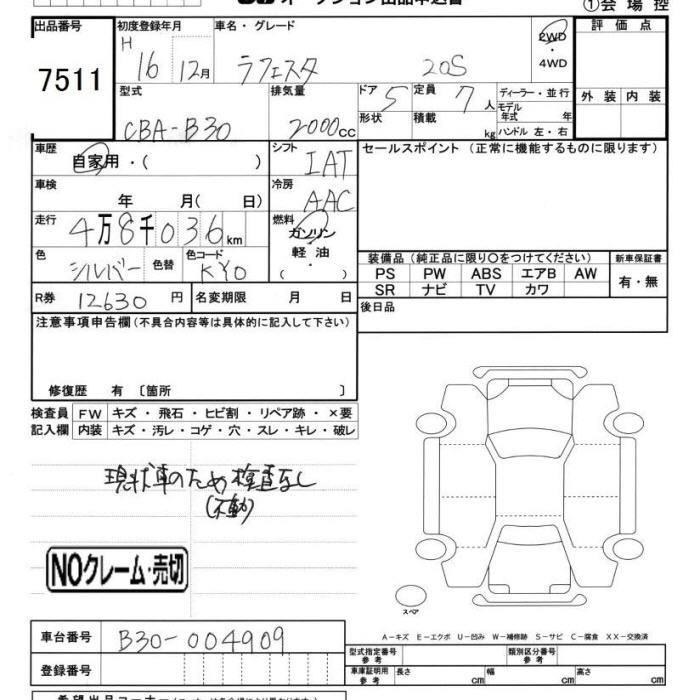 オークション出品申込書
①会場控
出品番号
7511
初度登録年月
H
16 12月
車名・グレード
ラフェスタ 20S
2WD
・4WD
評価点
外装 内装
型式
CBA-B30
排気量
2000cc
ドア 5
定員 7人
形状
積載 kg
ディーラー・並行
モデル年式 年
ハンドル 左・右
車歴
自家用・( )
シフト
IAT
セールスポイント(正常に機能するものに限ります)
車検
年 月( 日)
冷房
AAC
走行
4万8千036km
燃料
ガソリン
軽油
( ・ )
色
シルバー
色替
色コード
KY0
装備品(純正品に限り○をつけてください)
新車保証書
PS PW ABS エアB AW
SR ナビ TV カワ
有・無
R券 12630円
名変期限 月 日
後日品
注意事項申告欄(不具合内容等は具体的に記入して下さい)
修復歴 有〔箇所 〕
検査員 FW キズ・飛石・ヒビ割・リペア跡・×要
記入欄 内装 キズ・汚レ・コゲ・穴・スレ・キレ・破レ
現状車のため検査なし
(不動)
NOクレーム・売切
スペア
A-キズ E-エクボ U-凹み W-補修跡 S-サビ C-腐食 XX-交換済
車台番号 B30-004909
型式指定番号
参考
類別区分番号
参考
登録番号
車庫証明用
参考
長さ cm 幅 cm 高さ cm